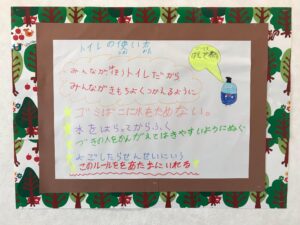 トイレの使い方
みんながつかうトイレだから
みんながきもちよくつかえるように
ゴミばこに水をためない。
水をはらってからふく
つぎの人をかんがえてはきやすいようにぬぐ
よごしたらせんせいにいう
このルールををあたまにいれる